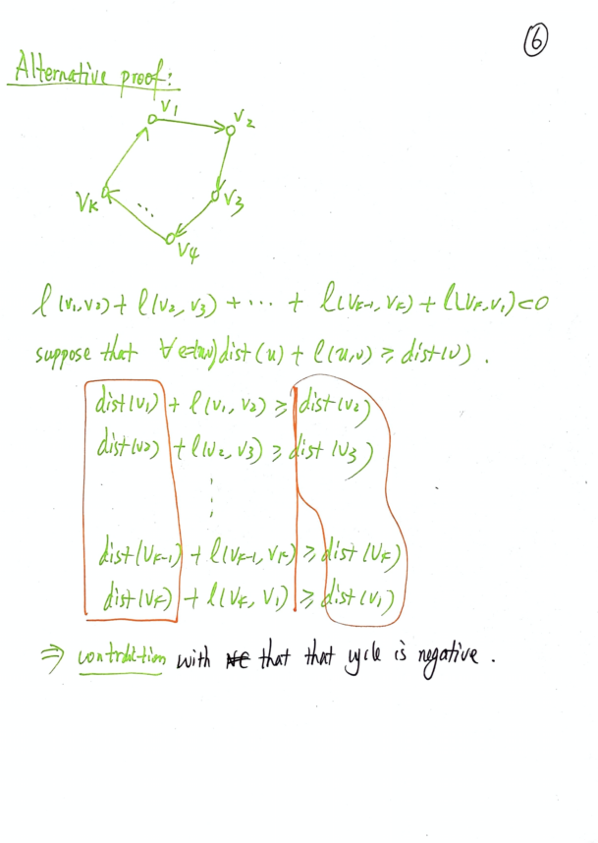 6
Alternative proof:
V1
V2
V3
V4
VK
...
l(v1,v2) + l(v2,v3) + ... + l(VK-1,VK) + l(VK,V1) <0
suppose that ∀e=(u,v) dist(u) + l(u,v) ≥ dist(v).
dist(v1) + l(v1,v2) ≥ dist(v2)
dist(v2) + l(v2,v3) ≥ dist(v3)
⋮
dist(VK-1) + l(VK-1,VK) ≥ dist(VK)
dist(VK) + l(VK,V1) ≥ dist(V1)
⇒ contrdiction with that that cycle is negative.